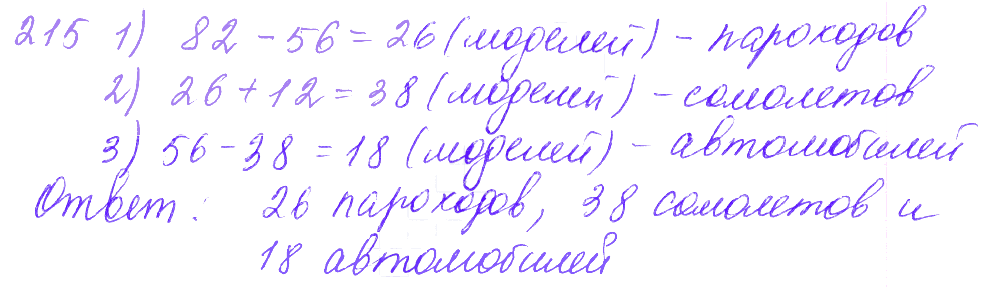 215 1) 82 - 56 = 26 (моделей) - пароходов
2) 26 + 12 = 38 (моделей) - самолетов
3) 56 - 38 = 18 (моделей) - автомобилей
Ответ: 26 пароходов, 38 самолетов и
18 автомобилей